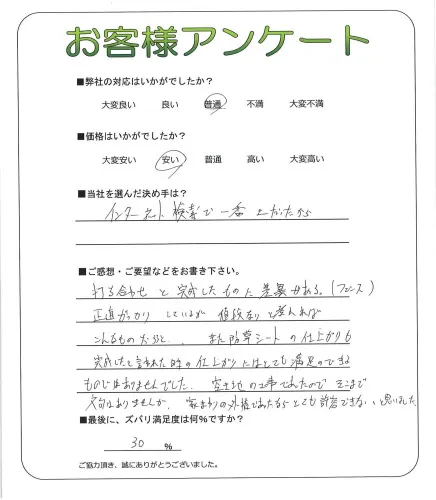 お客様アンケート
■弊社の対応はいかがでしたか？
大変良い 良い 普通 不満 大変不満
■価格はいかがでしたか？
大変安い 安い 普通 高い 大変高い
■当社を選んだ決め手は？
インターネット検索で一番 上だったから
■ご感想・ご要望などをお書き下さい。
打ち合わせ と 完成したものに差異がある。(フェンス)
正直がっかり しているが 値段なりと考えれば
こんなものだろうと、また防草シートの仕上がりも
完成したと言われた時の仕上がりにはとても満足のできる
ものではありませんでした。空き地の工事であったのでそこまで
文句はありませんが、家まわりの外構であったらとても許容できないと思いました
■最後に、ズバリ満足度は何%ですか？
30 %
ご協力頂き、誠にありがとうございました。